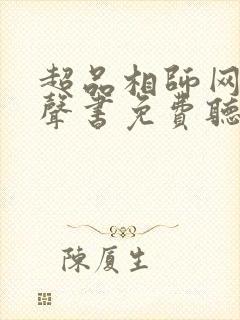 超品相師网
聲書免費聽
陳厦生